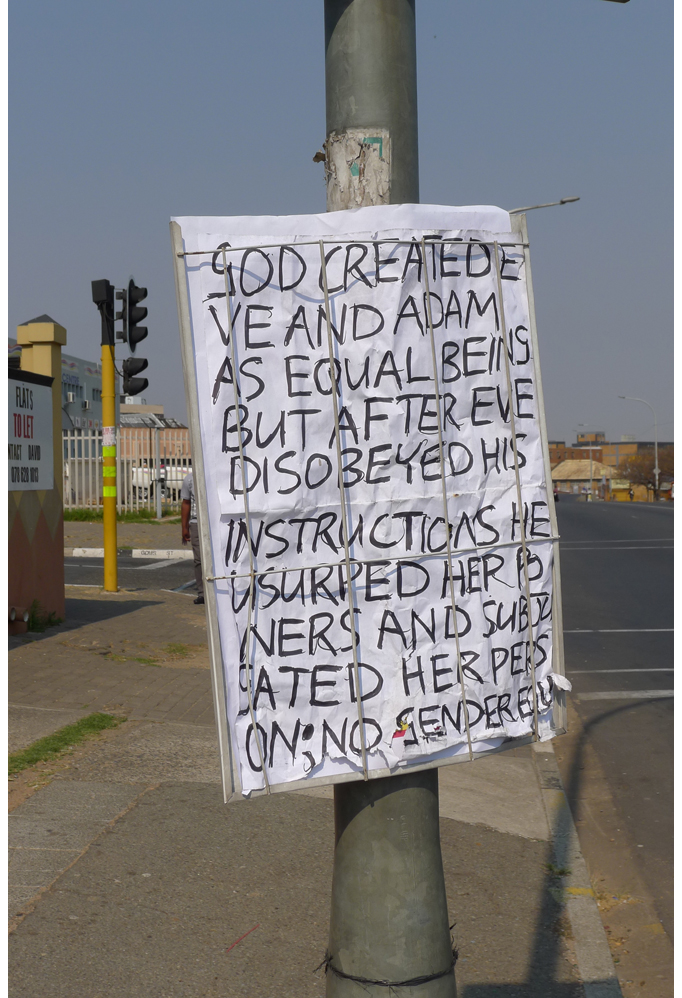 GOD CREATED E
VE AND ADAM
AS EQUAL BEINGS
BUT AFTER EVE
DISOBEYED HIS
INSTRUCTIONS HE
USURPED HER PO
WERS AND SUBJU
GATED HER PERS
ON; NO GENDER EQU
FLATS
TO LET
DAVID